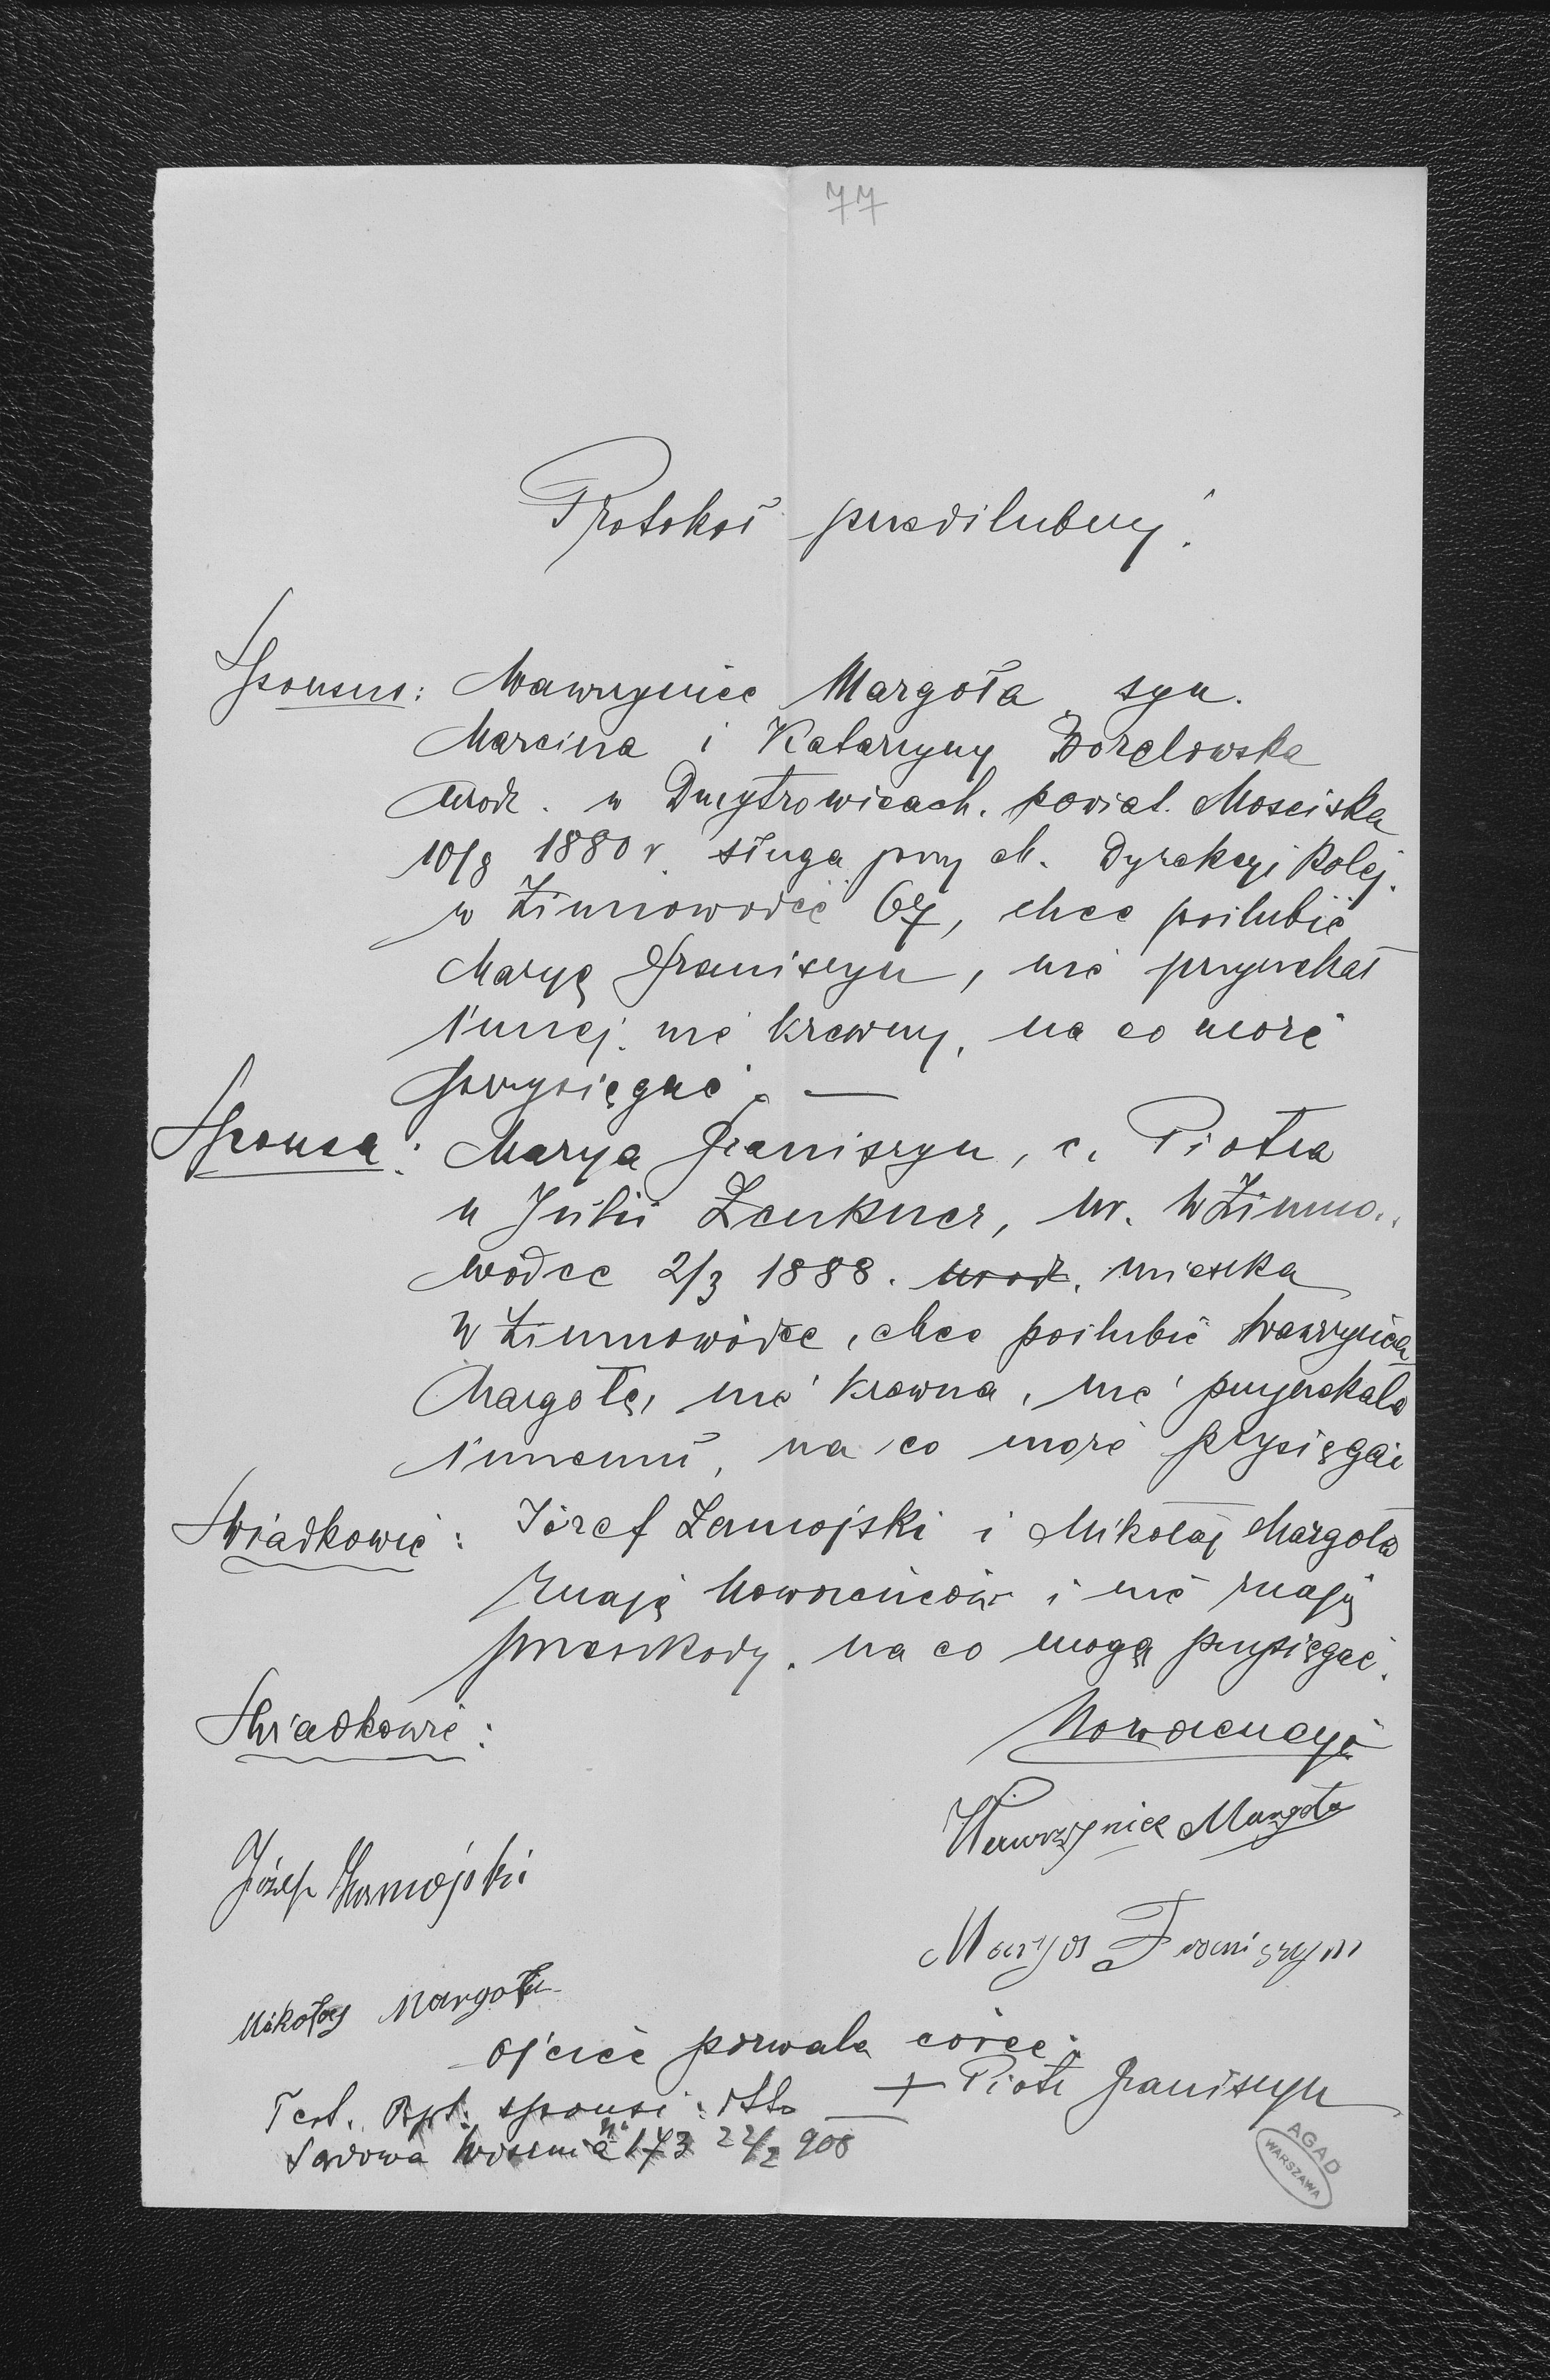 77
Protokół przedślubny.
Sponsus: Wawrzyniec Margoła syn.
Marcina i Katarzyny Borelowska
urodz. w Dmytrowicach. powiat. Mosciska
10/8 1880 r. sługa przy ck. Dyrekcyi Kolej.
w Zimnowodzie 67, chce poślubić
Maryę Franiszyn, nie przyrzekał
innej, nie krewny, na co może
przysięgać. —
Sponsa: Marya Franiszyn, c. Piotra
u Julii Zenkner, ur. w Zimno..
wodce 2/3 1888. urodz. mieszka
w Zimnowódce, chce poślubić Wawrzyńca
Margołę, nie krewna, nie przyrzekała
innemu, na co może przysięgać
Świadkowie: Józef Zamojski i Mikołaj Margoła
znają Nowożeńców i nie znają
przeszkody, na co mogą przysięgać.
Świadkowie: Nowożency:
Wawrzyniec Margoła
Józef Zamojski
Marya Franiszyn
Mikołaj Margoła
Ojciec pozwala córce:
+ Piotr Franiszyn
Test. Bpt. sponsi:
Sądowa Wisznia No 173 22/2 908
AGAD
WARSZAWA